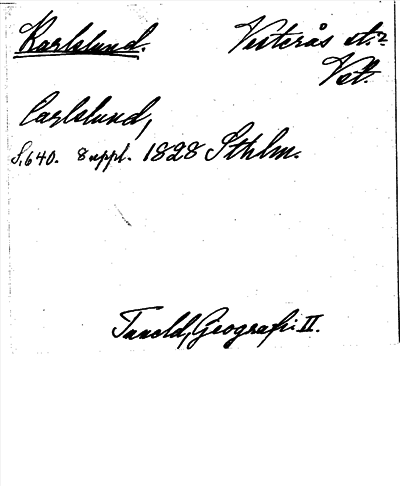 Karlslund. Vesterås st.?
Vstl.
Carlslund,
S. 640. 8 uppl. 1828 Sthlm.
Tuneld, Geografi II.